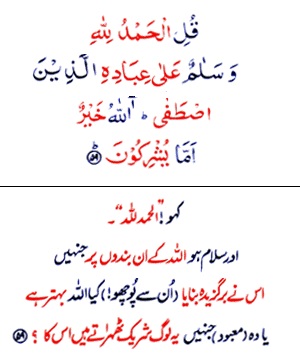 قُلِ الْحَمْدُ لِلّٰهِ
وَسَلٰمٌ عَلٰى عِبَادِهِ الَّذِيْنَ
اصْطَفٰى ؕ آٰللّٰهُ خَيْرٌ
اَمَّا يُشْرِكُوْنَ ؕ ﴿۵۹﴾
کہو! ”الحمدللہ“۔
اور سلام ہو اللہ کے ان بندوں پر جنہیں
اس نے برگزیدہ بنایا (اُن سے پُوچھو!) کیا اللہ بہتر ہے
یا وہ (معبود) جنہیں یہ لوگ شریک ٹھہراتے ہیں اس کا ؟ ﴿۵۹﴾